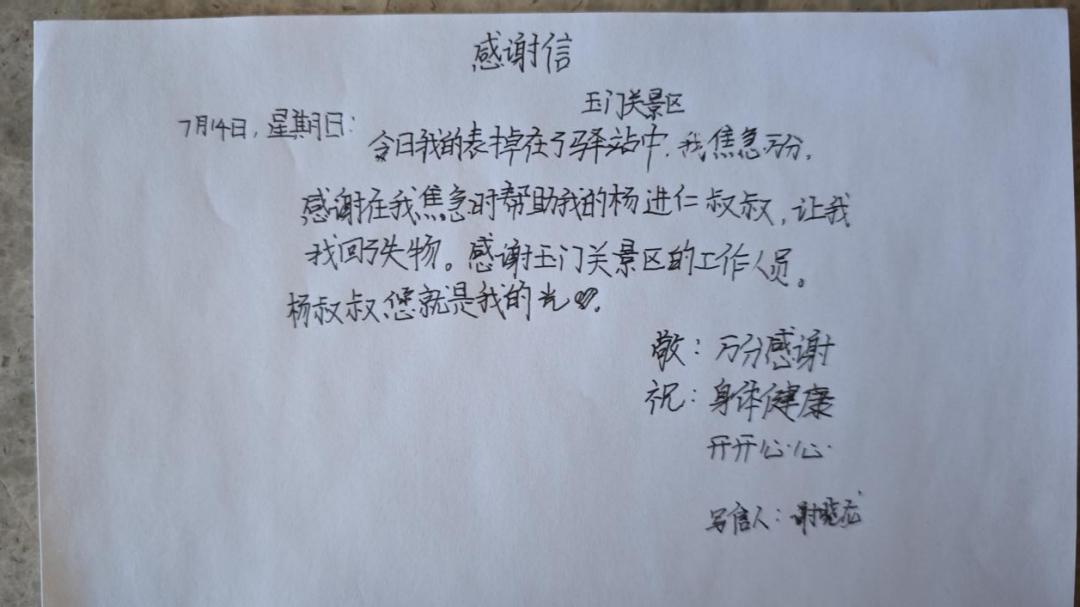 感谢信
玉门关景区
7月14日，星期日：
今日我的表掉在了驿站中，我焦急万分。
感谢在我焦急时帮助我的杨进仁叔叔，让我
找回了失物。感谢玉门关景区的工作人员。
杨叔叔您就是我的光♡。
敬：万分感谢
祝：身体健康
开开心心
写信人：谢